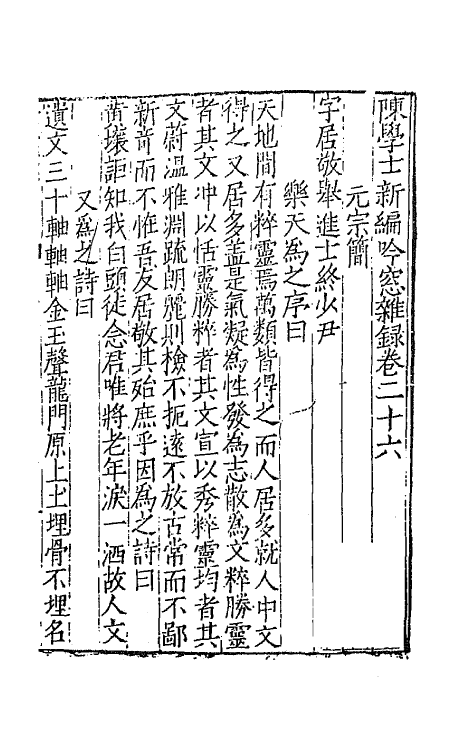 陳學士新編吟窓雜録卷二十六
元宗簡
字居敬舉進士終少尹
樂天為之序曰
天地間有粹靈焉萬類皆得之而人居多就人中文
得之又居多蓋是氣凝為性發為志散為文粹勝靈
者其文冲以恬靈勝粹者其文宣以秀粹靈均者其
文蔚温雅淵疏朗麗則檢不扼逺不放古常而不鄙
新奇而不恠吾友居敬其殆庶乎因為之詩曰
黄壤詎知我白頭徒念君唯將老年淚一洒故人文
又為之詩曰
遺文三十軸軸軸金玉聲龍門原上土埋骨不埋名